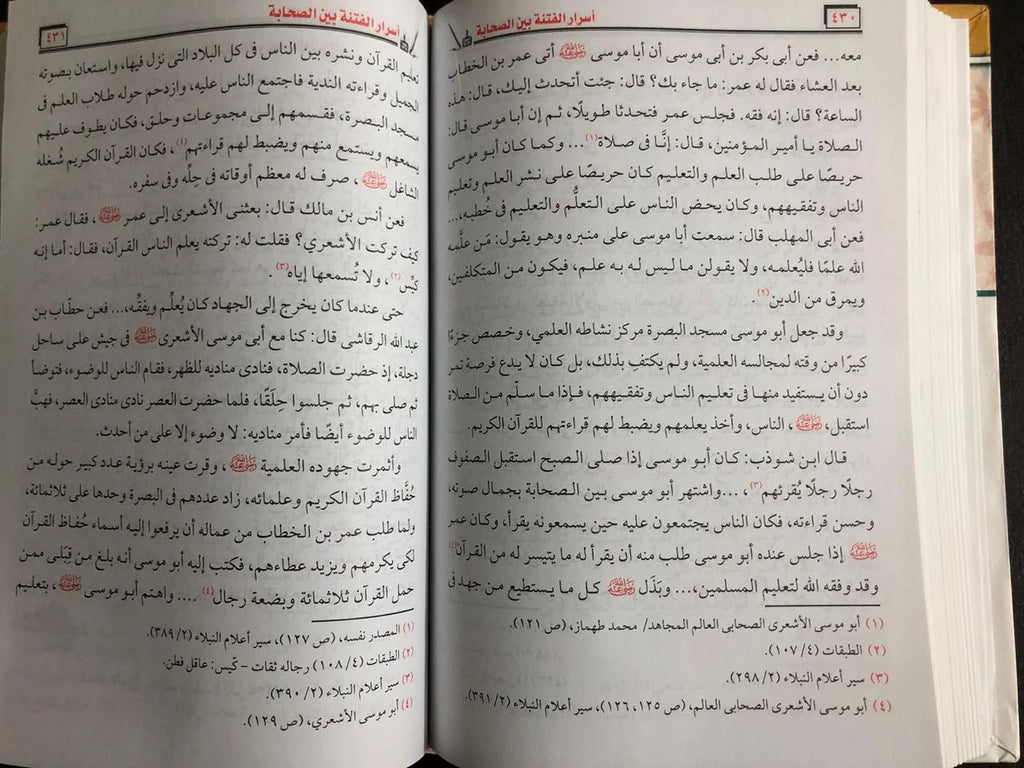 ٤٣٠
أسرار الفتنة بين الصحابة
معه... فعن أبى بكر بن أبى موسى أن أبا موسى رضي الله عنه أتى عمر بن الخطاب
بعد العشاء فقال له عمر: ما جاء بك؟ قال: جئت أتحدث إليك، قال: هذه
الساعة؟ قال: إنه فقه. فجلس عمر فتحدثا طويلًا، ثم إن أبا موسى قال:
الصلاة يا أمير المؤمنين، قال: إنَّا فى صلاة(١)... وكما كان أبو موسى
حريصًا على طلب العلم والتعليم كان حريصًا على نشر العلم وتعليم
الناس وتفقيههم، وكان يحض الناس على التعلُّم والتعليم فى خُطبه،...
فعن أبى المهلب قال: سمعت أبا موسى على منبره وهو يقول: مَن علَّمه
الله علمًا فليُعلمه، ولا يقولن ما ليس له به علم، فيكون من المتكلفين،
ويمرق من الدين(٢).
وقد جعل أبو موسى مسجد البصرة مركز نشاطه العلمي، وخصص جزءًا
كبيرًا من وقته لمجالسه العلمية، ولم يكتفِ بذلك، بل كان لا يدع فرصة تمر
دون أن يستفيد منها فى تعليم الناس وتفقيههم، فإذا ما سلّم من الصلاة
استقبل، رضي الله عنه، الناس، وأخذ يعلمهم ويضبط لهم قراءتهم للقرآن الكريم.
قال ابن شوذب: كان أبو موسى إذا صلى الصبح استقبل الصفوف
رجلًا رجلًا يُقرئهم(٣)، ...واشتهر أبو موسى بين الصحابة بجمال صوته،
وحسن قراءته، فكان الناس يجتمعون عليه حين يسمعونه يقرأ، وكان عمر
رضي الله عنه إذا جلس عنده أبو موسى طلب منه أن يقرأ له ما يتيسر له من القرآن(٤)
وقد وفقه الله لتعليم المسلمين،... وبَذَل رضي الله عنه كل ما يستطيع من جهد فى
(١) أبو موسى الأشعرى الصحابى العالم المجاهد/ محمد طهماز، (ص ١٢١).
(٢) الطبقات (٤/ ١٠٧).
(٣) سير أعلام النبلاء (٢/ ٢٩٨).
(٤) أبو موسى الأشعرى الصحابى العالم، (ص ١٢٥، ١٢٦)، سير أعلام النبلاء (٢/ ٣٩١).
أسرار الفتنة بين الصحابة
٤٣١
تعليم القرآن ونشره بين الناس فى كل البلاد التى نزل فيها، واستعان بصوته
الجميل وقراءته الندية فاجتمع الناس عليه، وازدحم حوله طلاب العلم فى
مسجد البصرة، فقسمهم إلى مجموعات وحلق، فكان يطوف عليهم
يسمعهم ويستمع منهم ويضبط لهم قراءتهم(١)، فكان القرآن الكريم شُغله
الشاغل رضي الله عنه، صرف له معظم أوقاته فى حِلِّه وفى سفره.
فعن أنس بن مالك قال: بعثنى الأشعرى إلى عمر رضي الله عنه، فقال عمر:
كيف تركت الأشعري؟ فقلت له: تركته يعلم الناس القرآن، فقال: أما إنه
كَيِّس(٢)، ولا تُسمعها إياه(٣).
حتى عندما كان يخرج إلى الجهاد كان يُعلِّم ويفقِّه،... فعن حطّاب بن
عبد الله الرقاشى قال: كنا مع أبى موسى الأشعرى رضي الله عنه فى جيش على ساحل
دجلة، إذ حضرت الصلاة، فنادى مناديه للظهر، فقام الناس للوضوء، فتوضأ
ثم صلى بهم، ثم جلسوا حِلَقًا، فلما حضرت العصر نادى منادى العصر، فهبَّ
الناس للوضوء أيضًا فأمر مناديه: لا وضوء إلا على من أحدث.
وأثمرت جهوده العلمية رضي الله عنه، وقرت عينه برؤية عدد كبير حوله من
حُفَّاظ القرآن الكريم وعلمائه، زاد عددهم فى البصرة وحدها على ثلاثمائة،
ولما طلب عمر بن الخطاب من عماله أن يرفعوا إليه أسماء حُفاظ القرآن
لكى يكرمهم ويزيد عطاءهم، فكتب إليه أبو موسى أنه بلغ من قِبَلى ممن
حمل القرآن ثلاثمائة وبضعة رجال(٤) .... واهتم أبو موسى رضي الله عنه، بتعليم
(١) المصدر نفسه، (ص ١٢٧)، سير أعلام النبلاء (٢/ ٣٨٩).
(٢) الطبقات (٤/ ١٠٨) رجاله ثقات – كَيس: عاقل فطن.
(٣) سير أعلام النبلاء (٢/ ٣٩٠).
(٤) أبو موسى الأشعرى، (ص ١٢٩).